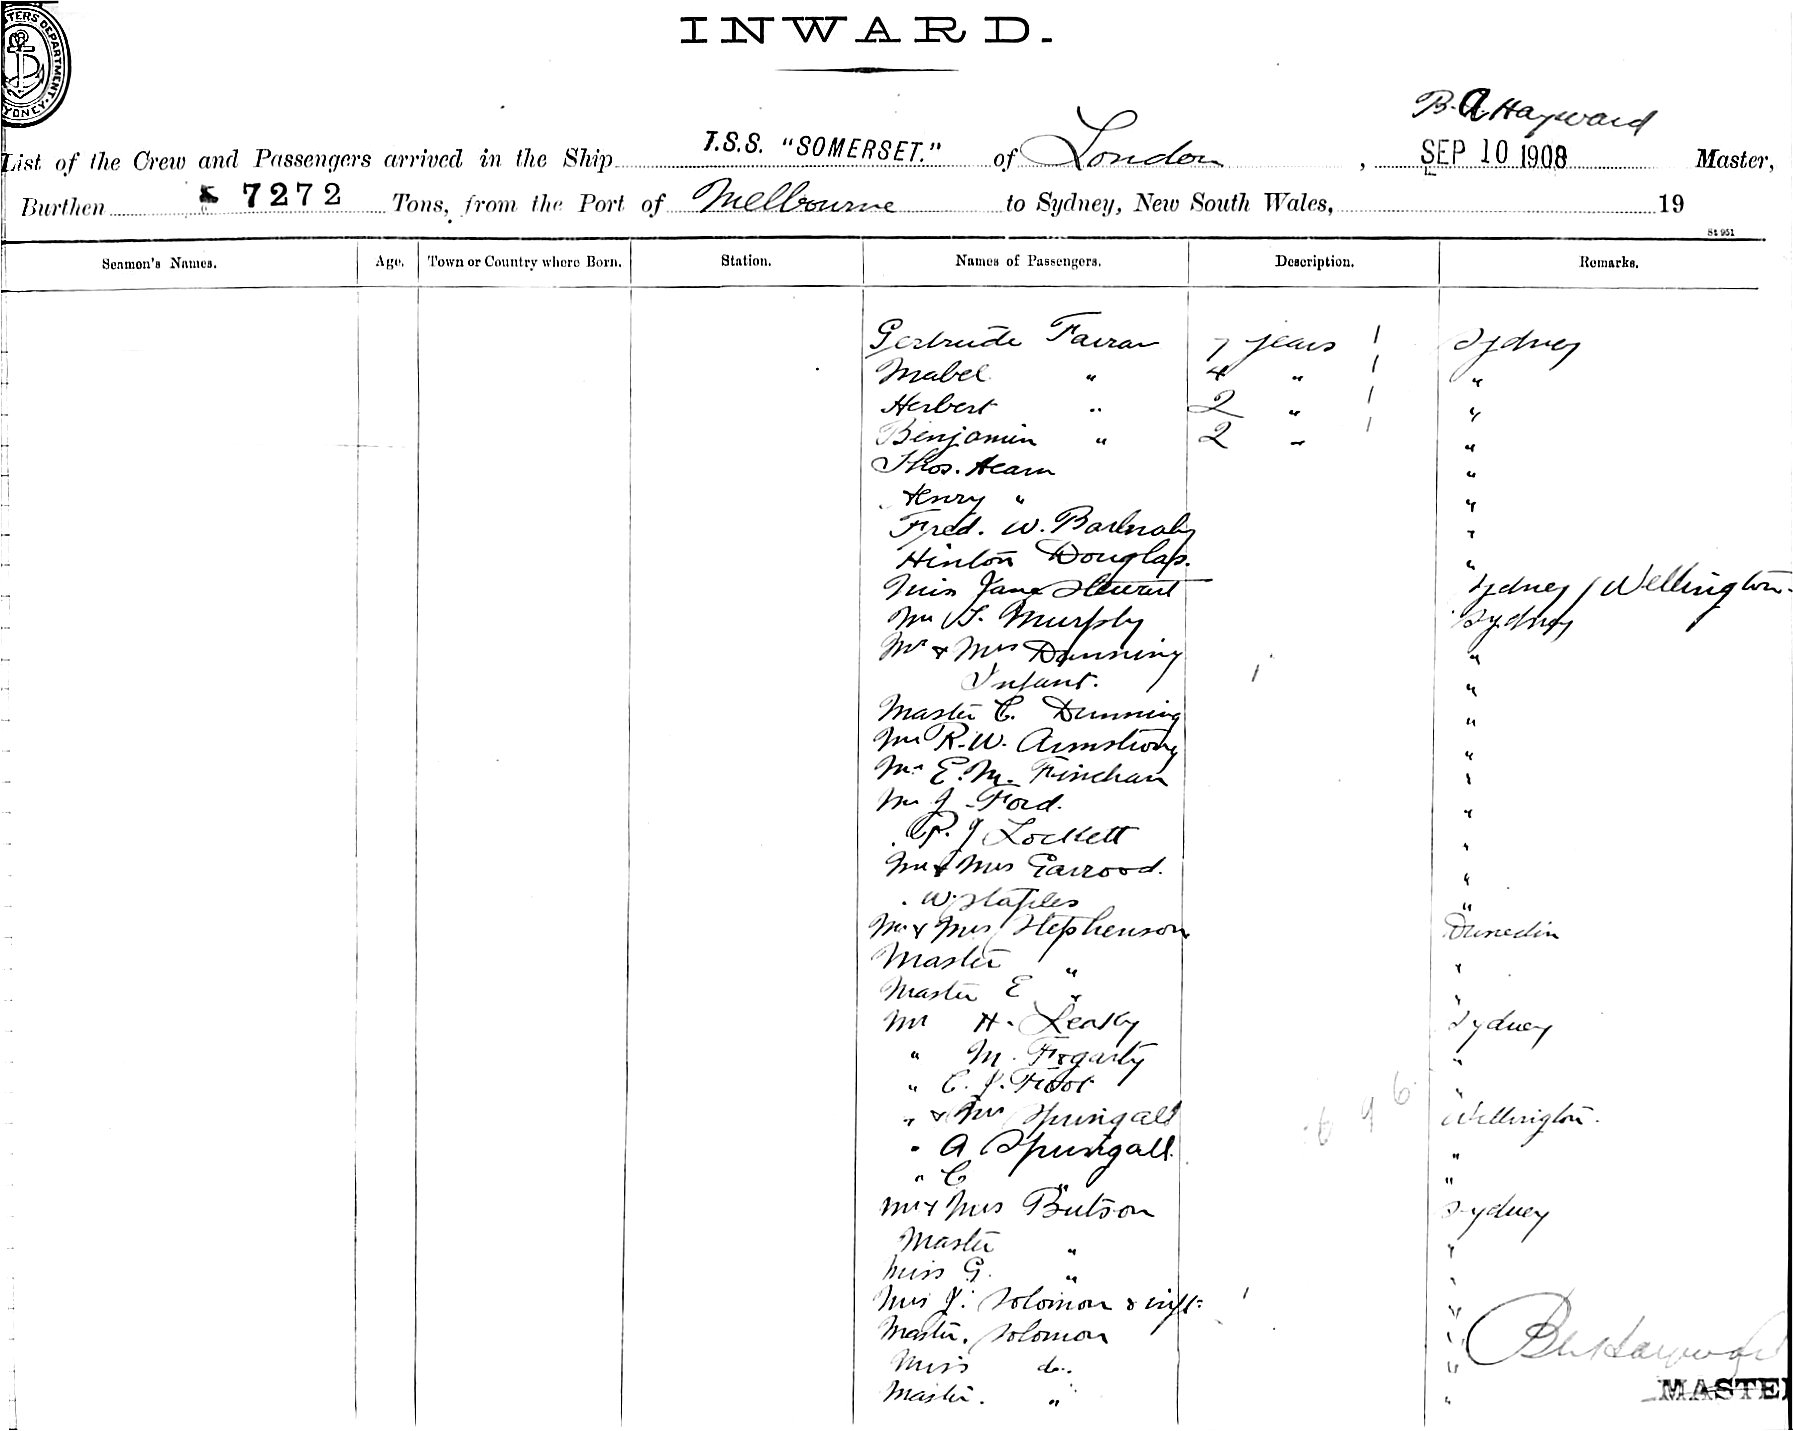 INWARD.
MASTERS DEPARTMENT. SYDNEY.
B. A Hayward
List of the Crew and Passengers arrived in the Ship T.S.S. "SOMERSET." of London, SEP 10 1908 Master,
Burthen 7272 Tons, from the Port of Melbourne to Sydney, New South Wales, 19
St 951
Seamen's Names. Age. Town or Country where Born. Station. Names of Passengers. Description. Remarks.
Gertrude Farrar 7 years 1 Sydney
Mabel " 4 " 1 "
Herbert " 2 " 1 "
Benjamin " 2 " 1 "
Thos. Hearn "
Henry " "
Fred. W. Barnaby "
Hinton Douglass. "
Miss Jane Stewart Sydney / Wellington.
Mr T. Murphy Sydney
Mr & Mrs Dunning "
Infant. 1 "
Master C. Dunning "
Mr R. W. Armstrong "
Mr E. M. Fincham "
Mr J Ford. "
P. J Lockett "
Mr & Mrs Garrood. "
W. Staples "
Mr & Mrs Stephenson Dunedin
Master " "
Master E " "
Mr H. Leaky Sydney
" M. Fogarty "
" C. J. Foot "
" & Mrs Springall Wellington.
" A Springall. "
" C " "
Mr & Mrs Butson Sydney
Master " "
Miss G. " "
Mrs J. Solomon & inft: 1 "
Master. Solomon "
Miss do. "
Master. " "
MASTER